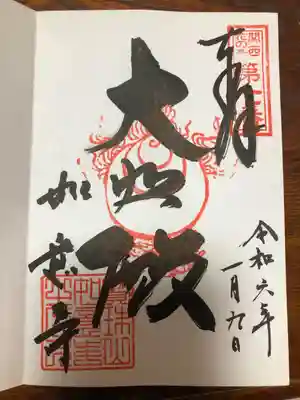 奉拝
関西
第七番
大悲殿
如意寺
令和六年
一月九日